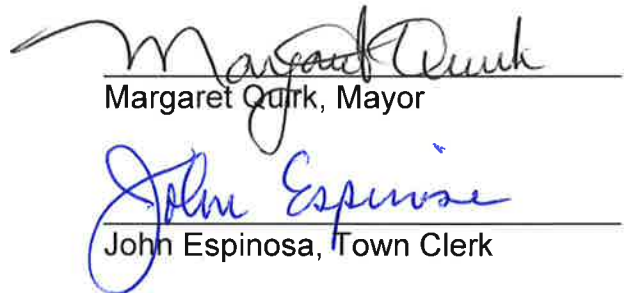 Margaret Quirk
Margaret Quirk, Mayor
John Espinosa
John Espinosa, Town Clerk